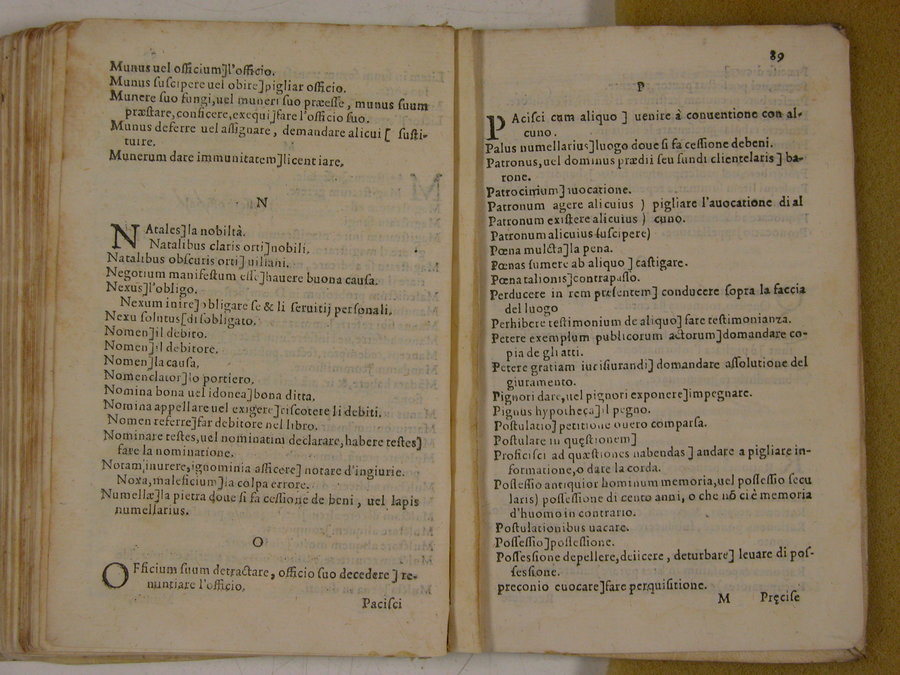 Munus uel officium]l'officio.
Munus suscipere uel obire]pigliar officio.
Munere suo fungi,uel muneri suo præesse, munus suum
præstare,conficere,exequi]fare l'officio suo.
Munus deferre uel assignare, demandare alicui [ susti-
tuire.
Munerum dare immunitatem]licentiare.
N
NAtales]la nobiltà.
Natalibus claris orti]nobili.
Natalibus obscuris orti] uiliani.
Negotium manifestum esse]hauere buona causa.
Nexus]l'obligo.
Nexum inire]obligare se & li seruitij personali.
Nexu solutus[disobligato.
Nomen]il debito.
Nomen]il debitore.
Nomen]la causa,
Nomenclator]lo portiero,
Nomina bona uel idonea]bona ditta.
Nomina appellare uel exigere]riscotere li debiti.
Nomen referre]far debitore nel libro.
Nominare testes,uel nominatim declarare,habere testes]
fare la nominatione.
Notam inurere,ignominia afficere] notare d'ingiurie.
Noxa,maleficium]la colpa errore.
Numellæ]la pietra doue si fa cessione de beni, uel lapis
numellarius.
O
OFficium suum detractare, officio suo decedere ] re-
nuntiare l'officio.
Pacisci
89
P
PAcisci cum aliquo ] uenire à conuentione con al-
cuno.
Palus numellarius]luogo doue si fa cessione debeni.
Patronus,uel dominus prædii seu fundi clientelaris ] ba-
rone.
Patrocinium] auocatione.
Patronum agere alicuius ) pigliare l'auocatione di al
Patronum existere alicuius ) cuno.
Patronum alicuius suscipere)
Pœna mulcta]la pena.
Pœnas sumere ab aliquo ] castigare.
Pœna talionis]contrapasso.
Perducere in rem presentem] conducere sopra la faccia
del luogo
Perhibere testimonium de aliquo] fare testimonianza.
Petere exemplum publicorum actorum]domandare co-
pia de gli atti.
Petere gratiam iurisiurandi] domandare assolutione del
giuramento.
Pignori dare,uel pignori exponere]impegnare.
Pignus hypotheca]il pegno.
Postulatio] petitione ouero comparsa.
Postulare in quęstionem]
Proficisci ad quæstiones habendas ] andare a pigliare in-
formatione,o date la corda.
Possessio antiquior hominum memoria,uel possessio secu
laris) possessione di cento anni, o che nõ ci è memoria
d'huomo in contrario.
Postulationibus uacare.
Possessio]possessione.
Possessione depellere,deiicere, deturbare] leuare di pos-
sessione.
preconio euocare]fare perquisitione.
M
Pręcise